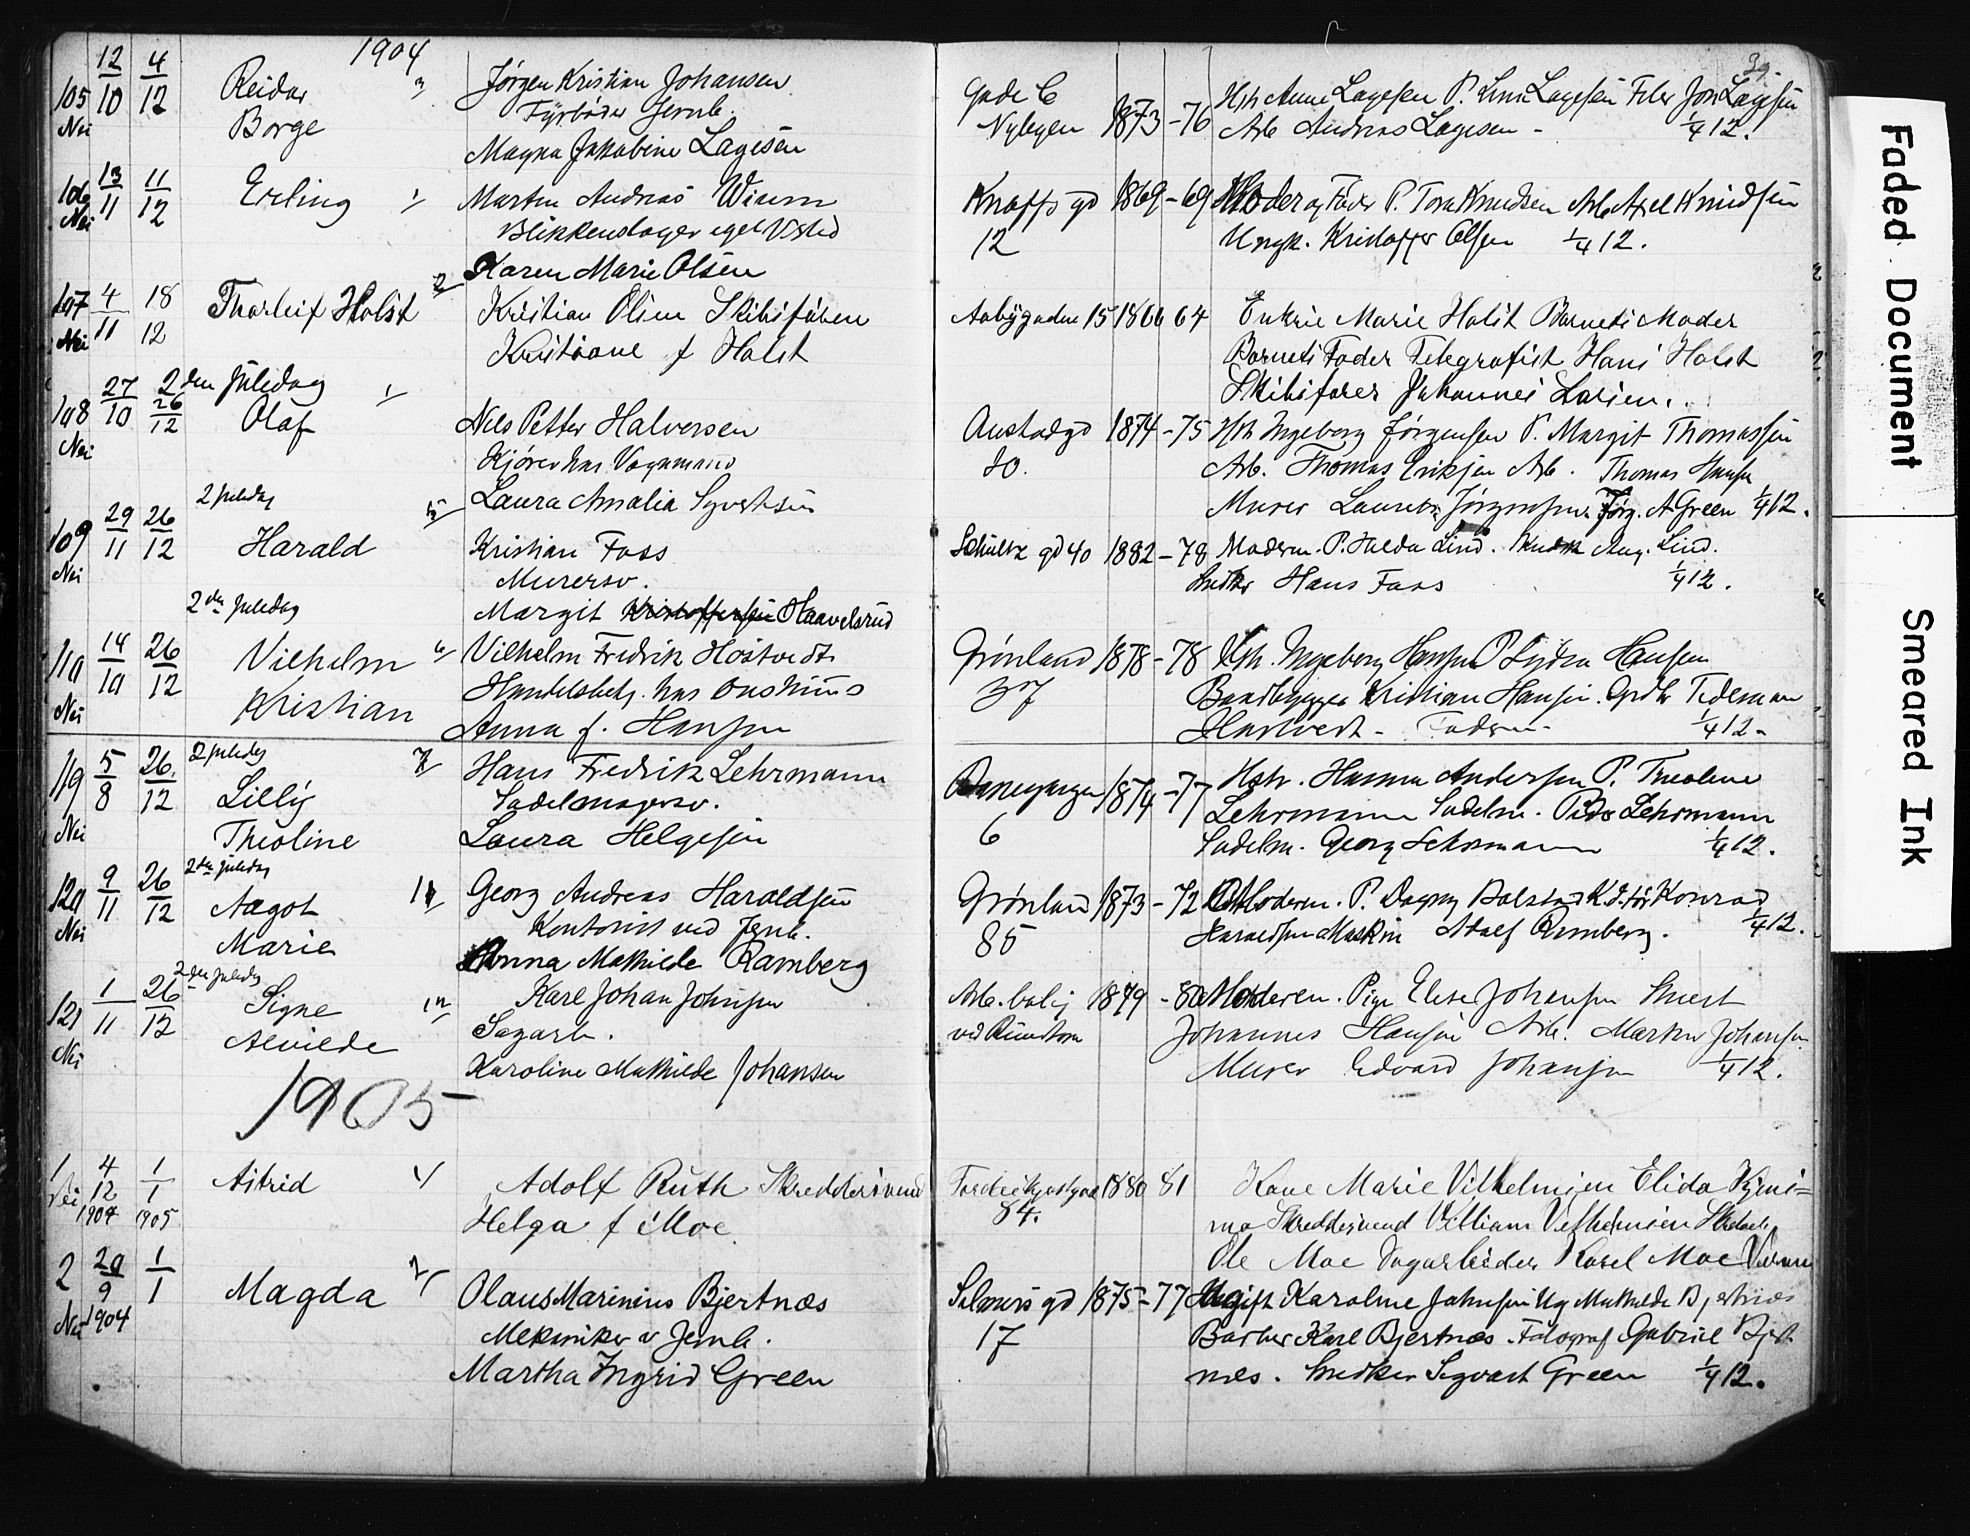 1904
39.
105 12/10 4/12 Reidar 3 Jørgen Kristian Johansen Gade C 1873-76 Hstr Anne Lagesen P. Lina Lagesen Filer Jon Lagesen
Nei Borge Fyrbøder Jernb. Nybyen Arb Andreas Lagesen - 1/4 12.
Magna Jakobine Lagesen
106 13/11 11/12 Erling Martin Andreas Wium Knoffs gd 1869-69 Moder og Fader P. Tora Knudsen Arb Axel Knudsen
Nei Blikkenslager eget Vksted 12 Ungk. Kristoffer Olsen 1/4 12.
Karen Marie Olsen
107 4/11 18/12 Thorleif Holst 2 Kristian Olsen Skibsfører Aabygaden 15 1866 64 Enkrie Marie Holst Barnets Moder
Nei Kristiane f Holst Barnets Fader Telegrafist Hans Holst
Skibsfører Johannes Larsen.
2den Juledag
108 27/10 26/12 Olaf 1 Nils Petter Halvorsen Austadgd 1874-75 Hstr Ingeborg Jørgensen P. Margit Thomassen
Nei Kjører hos Vognmand 10. Arb. Thomas Eriksen Arb. Thomas Hansen
Laura Amalia Syvertsen Murer Laurits Jørgensen. Jørg. A Green 1/4 12.
2 Juledag
109 29/11 26/12 Harald 5 Kristian Foss Schultz gd 40 1882-78 Moderen. P. Hulda Lind. Aug. Lind.
Nei Murersv. Snedker Hans Foss 1/4 12.
Margit Kristoffersen Haavelsrud
2den Juledag
110 14/10 26/12 Vilhelm 6 Vilhelm Fredrik Hostvedt Grønland 1878-78 Hstr. Ingeborg Hansen P Lydia Hansen
Nei Kristian Handelsbetj. hos 37 Baadbygger Kristian Hansen. Tideman
Anna f. Hansen Hostvedt - Faderen - 1/4 12.
2 Juledag
119 5/8 26/12 Lilly 7 Hans Fredrik Lehrmann 1874-77 Hstr. Hanna Andersen P. Theoline
Nei Theoline Sadelmagersv. 6 Lehrmann Sadelm. Peder Lehrmann
Laura Helgesen Sadelm. Georg Lehrmann 1/4 12.
2den Juledag
120 9/11 26/12 Aagot 11 Georg Andreas Haraldsen Grønland 1873-72 Moderen. P. Dagny Bolstad Konrad
Nei Marie Kontorist ved Jernb. 85 Haraldsen Maskin Adolf Ramberg. 1/4 12.
Anna Mathilde Ramberg
2den Juledag
121 1/11 26/12 Signe 12 Karl Johan Johnsen Arb. bolig 1879-80 Moderen. Pige Elise Johansen Smed
Nei Alvilde Sagarb. ved Rundtom Johannes Hansen Arb. Martin Johansen
Karoline Mathilde Johansen Murer Edvard Johansen 1/4 12.
1905
1 4/12 1904 1/1 1905 Astrid Adolf Ruth Skreddersvend 1880 81 Kone Marie Vilhelmsen Elida
Nei Helga f Moe 84. Skreddersvend William Vilhelmsen
Ole Moe Sagarbeider Karel Moe
2 20/9 1904 1/1 Magda 2 Olaus Marinius Bjertnæs Selmers gd 1875-77 Ugift Karoline Johnsen Ug Mathilde Bjertnæs
Nei Mekaniker v Jernb. 17 Barber Karl Bjertnæs. Fotograf Gabriel Bjert
Martha Ingrid Green næs. Snedker Sigvart Green 1/4 12.
Faded Document
Smeared Ink